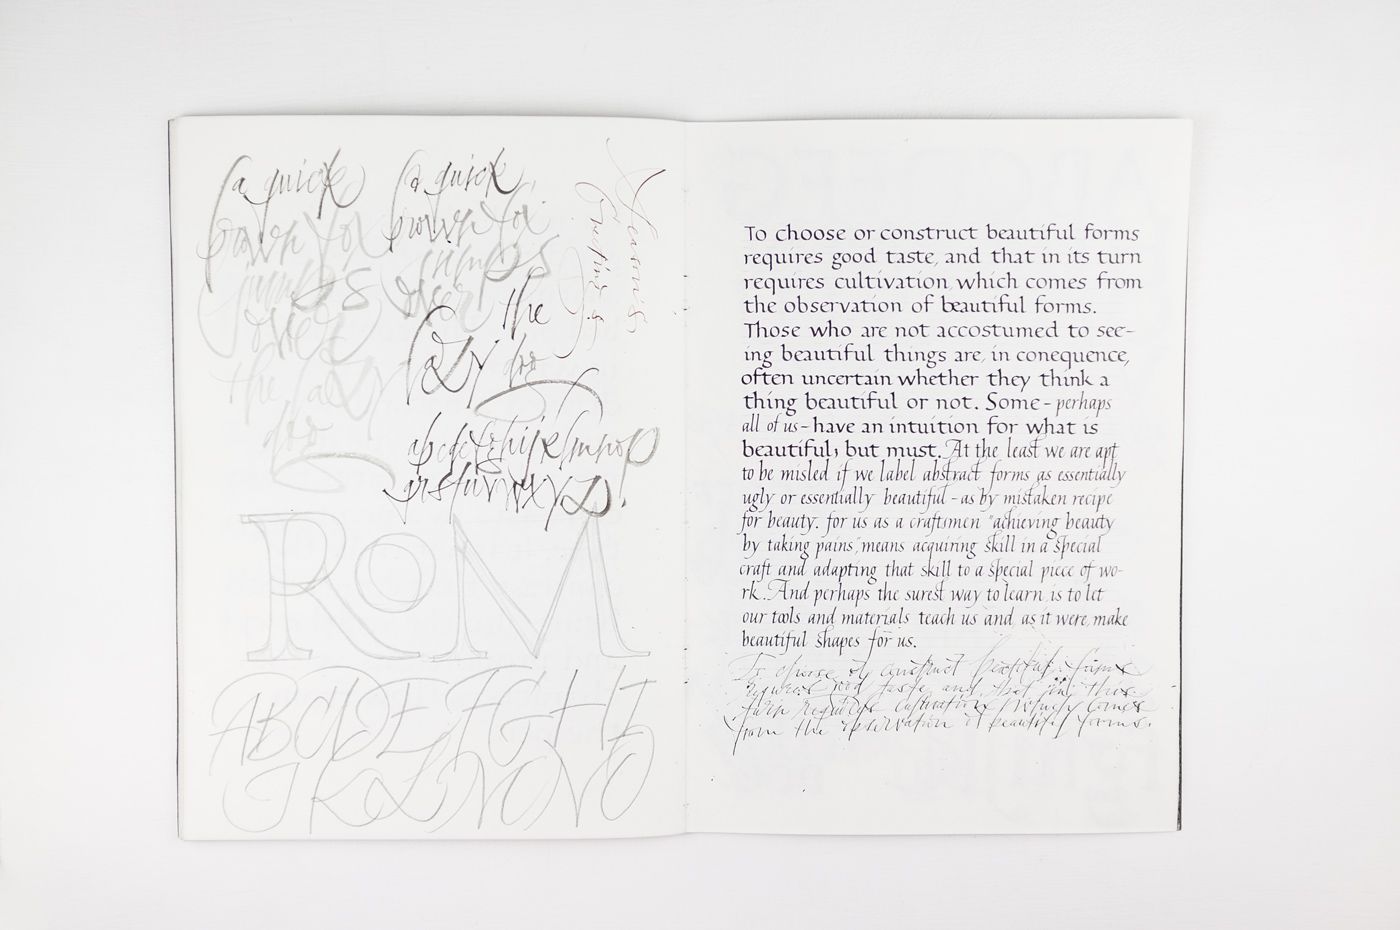 a quick
brown fox
jumps
over
the lazy
dog
a quick
brown fox
jumps
over the
lazy dog
Season's
Greetings
abcdefghijklmnop
qrstuvwxyz.
ROM
ABCDEFGHI
JKLMNO
To choose or construct beautiful forms
requires good taste, and that in its turn
requires cultivation, which comes from
the observation of beautiful forms.
Those who are not accostumed to see-
ing beautiful things are, in conequence,
often uncertain whether they think a
thing beautiful or not. Some - perhaps
all of us - have an intuition for what is
beautiful; but must. At the least we are apt
to be misled if we label abstract forms as essentially
ugly or essentially beautiful - as by mistaken recipe
for beauty. for us as a craftsmen "achieving beauty
by taking pains", means acquiring skill in a special
craft and adapting that skill to a special piece of wo-
rk. And perhaps the surest way to learn, is to let
our tools and materials teach us and, as it were, make
beautiful shapes for us.
To choose or construct beautiful forms
requires good taste, and that in this
turn requires cultivation, which comes
from the observation of beautiful forms.